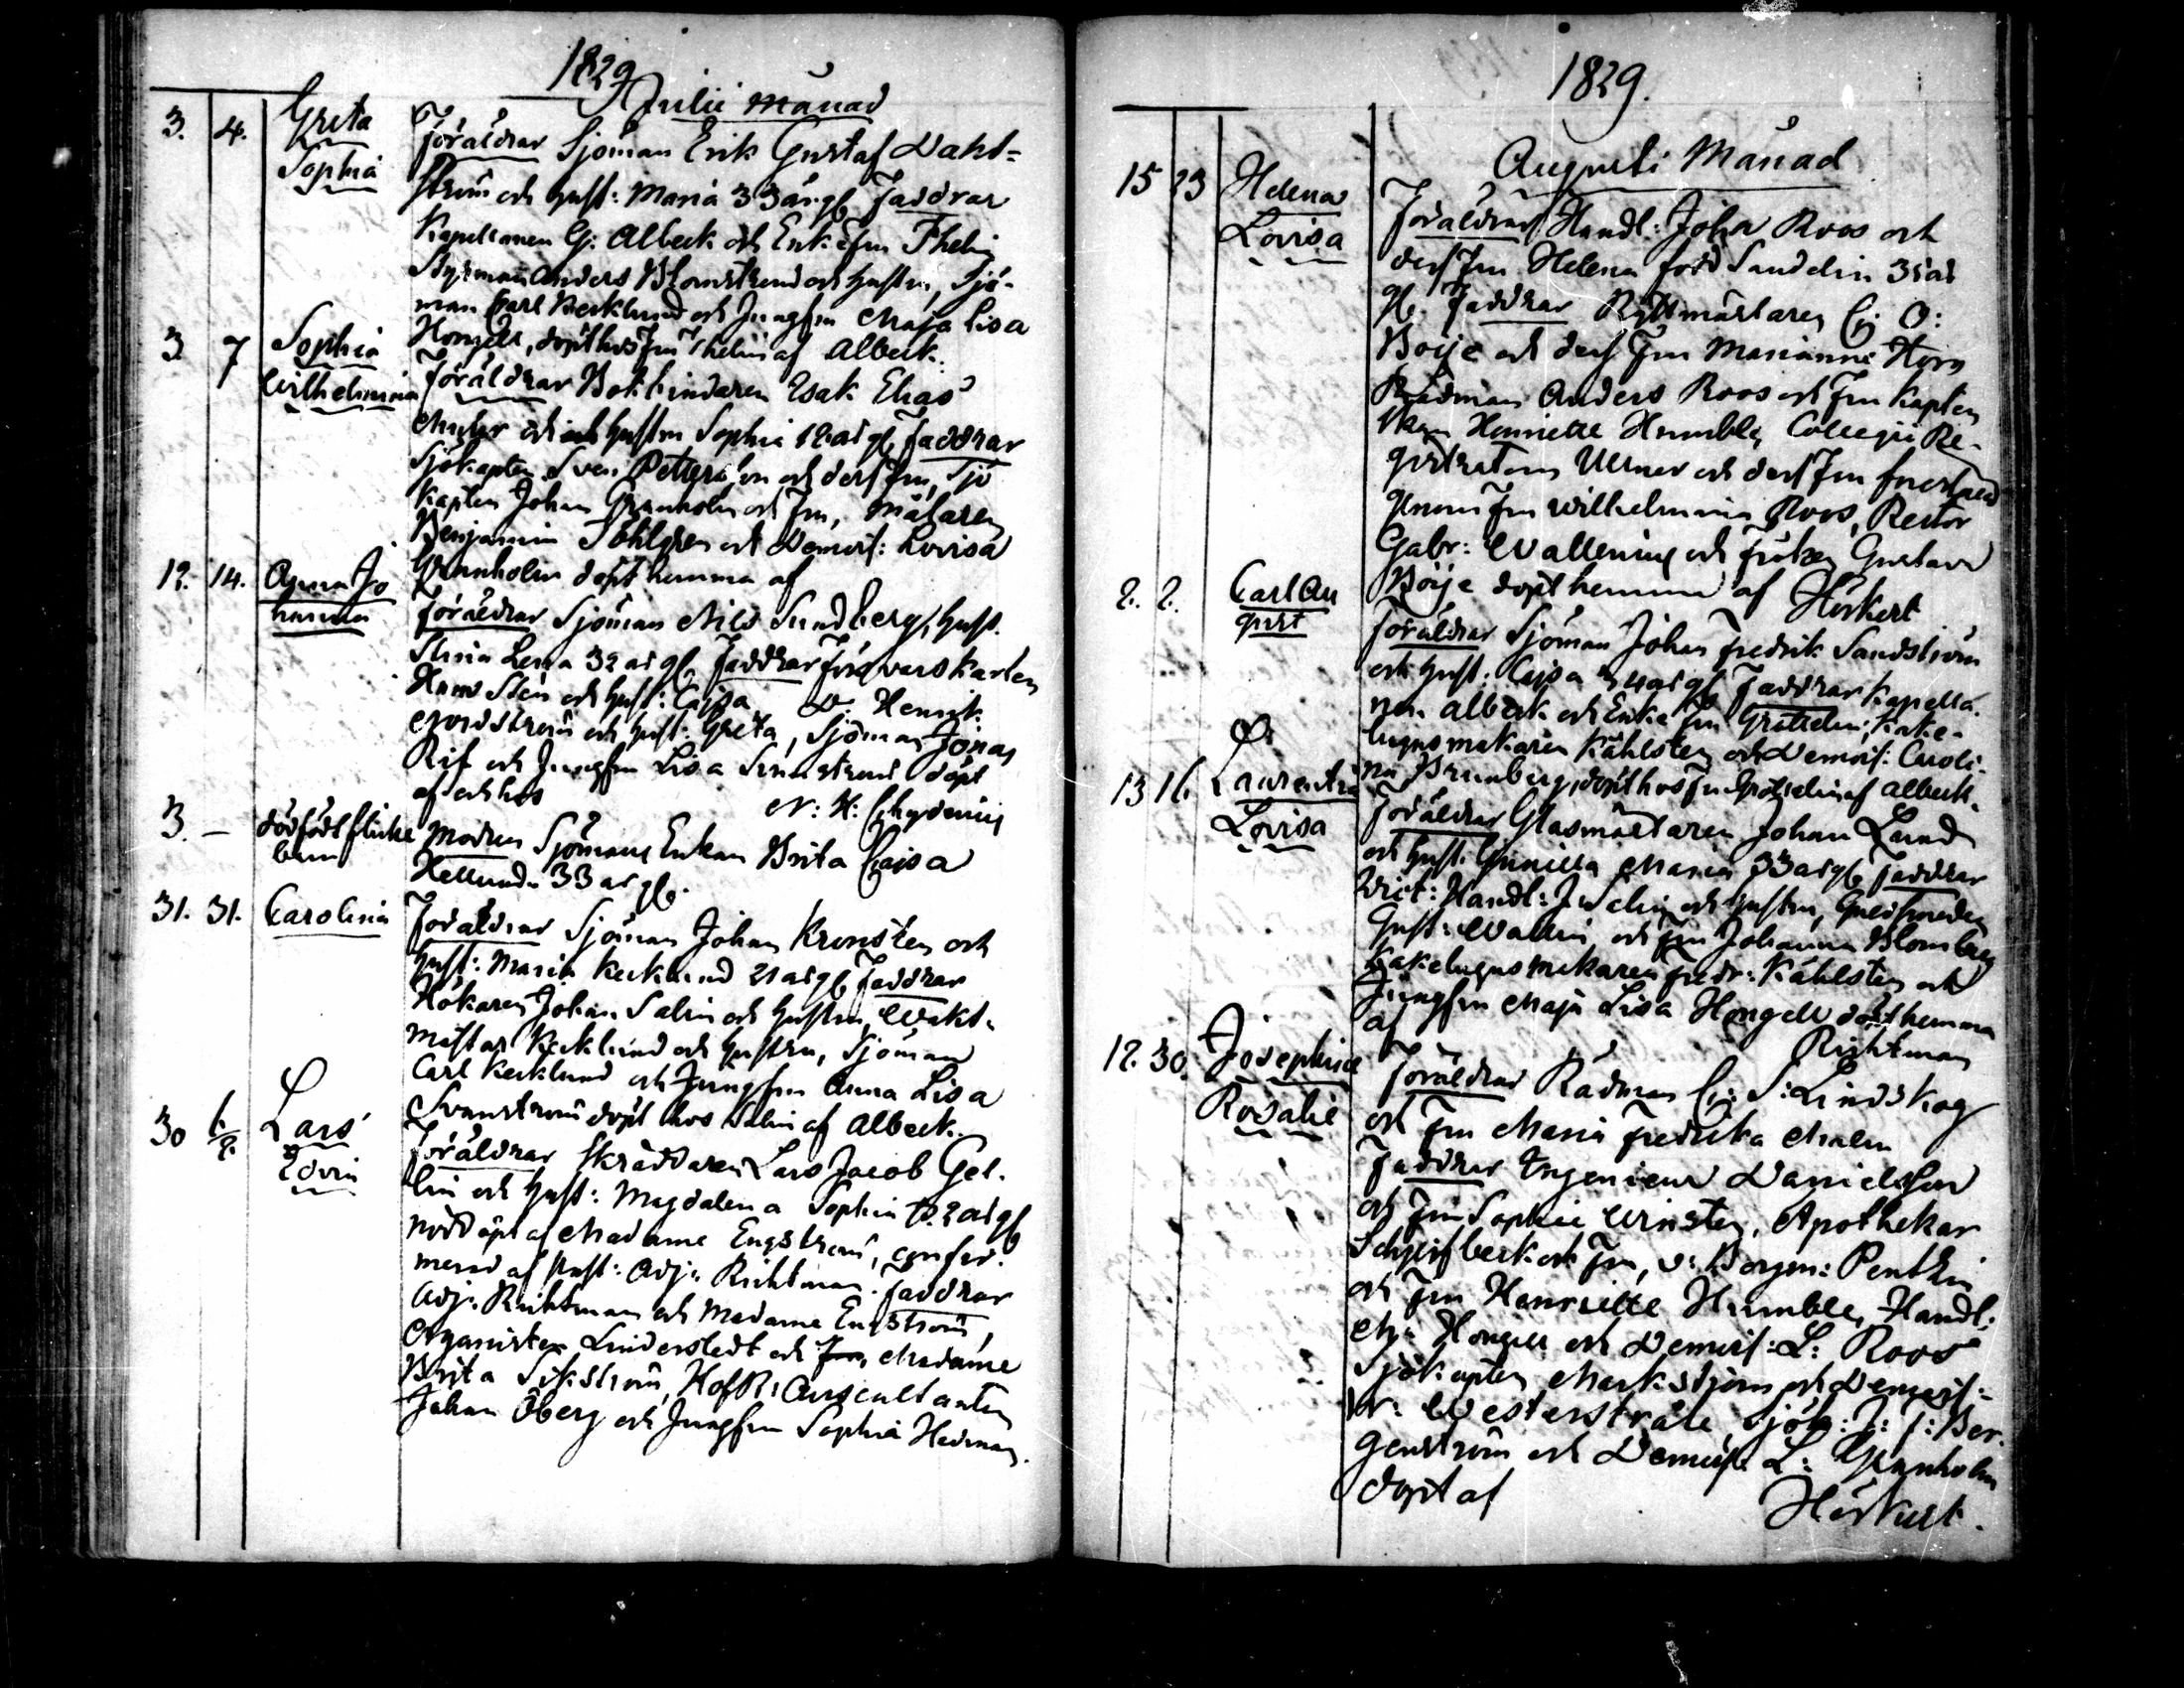 1829
Julii månad
3. 4. Greta Sophia
Föräldrar Sjöman Erik Gustaf Dahl-
ström och hust: Maria 33 år gl. Faddrar
Kapellanen G: Albeck och Enkefru Thelin
Styrman Anders Blomstrand och hustru, Sjö-
man Carl Kecklund och Jungfru Maja Lisa
Hongell, döpt hos Fru Thelin af Albeck.
3. 7 Sophia Wilhelmina
Föräldrar Bokbindaren Esak Elias
och hustru Sophia år gl. Faddrar
Sjökapten Sven Petterson och dess fru, Sjö
kapten Johan Granholm och fru, Målaren
Benjamin och Demois: Lovisa
Granholm döpt hemma af
12. 14. Anna Jo hanna
Föräldrar Sjöman Nils Sundberg, hust.
Stina Lena 32 år gl. Faddrar Försvarskarlen
Hans Sten och hust: Cajsa D. Henrik
Nordström och hust: Greta, Sjöman Jonas
Rif och Jungfru Lisa döpt
af och hos N: H: Chydenius
3. — dödfödt flicke barn
Modren Sjömans Enkan Brita Cajsa
Hellund 33 år gl.
31. 31. Carolina
Föräldrar Sjöman Johan Kronsten och
hust: Maria Kecklund 21 år gl. Faddrar
Hökaren Johan Salin och hustru, Wakt-
mästar Kecklund och hustru, Sjöman
Carl Kecklund och Jungfru Anna Lisa
Svanström döpt hos Salin af Albeck.
30 Lars Edvin
Föräldrar Skräddaren Lars Jacob Gel-
lin och hust: Magdalena Sophia år gl
nöddöpt af Madame Engström, confir-
merad af Past: Adj: Richtman. Faddrar
Adj: Richtman och Madame Engström,
Organisten Linderstedt och Madame
Brita Sikström, HofR: Auscultanten
Johan Öberg och Jungfru Sophia Hedman.
1829.
Augusti Månad
15 23 Helena Lovisa
Föräldrar Handl: Johan Roos och
dess fru Helena född Sandelin 35 år
gl. Faddrar Ryttmästaren C: O:
Boije och dess Fru Marianne
Rådman Anders Roos och Fru Kapten
skan Henriette Humble, Collegii Re-
gistratorn Ullner och dess Fru
genom Fru Wilhelmina Roos, Rector
Gabr: Wallenius och Fröken Gustava
Böije döpt hemma af Hörkert
2. 2. Carl Au gust
Föräldrar Sjöman Johan Fredrik Sandström
och hust: Cajsa 34 år gl Faddrar Kapella-
nen Albeck och Enke fru Kake-
lugnsmakaren Kåhlsten och Demois: Caroli-
na Brunberg, döpt hos af Albeck.
13 16 Laurentia Lovisa
Föräldrar Glasmästaren Johan Lund
och hust: Gunilla Maria 33 år gl Faddrar
Vict: Handl: J Salin och hustru, Guldsmeden
Gust: Wallin och fru Johanna Blomberg
Kakelugnsmakaren Fredr: Kåhlsten och
Jungfru Maja Lisa Hongell döpt hemma
af Richtman
12. 30. Josephine Rosalie
Föräldrar Rådman C: S: Lindskog
och fru Maria Fredrika Malm
Faddrar Ingenieur Danielsson
och fru Sophie Winsten, Apothekar
och Fru, v: Borgm: Penthin
och Fru Henriette Humble, Handl:
Hongell och Demois: L: Roos
Sjökapten och Demois:
Westerstråle, Sjök: J: J: Ber-
genström och Demois: L: Granholm
döpt af Hörkert.